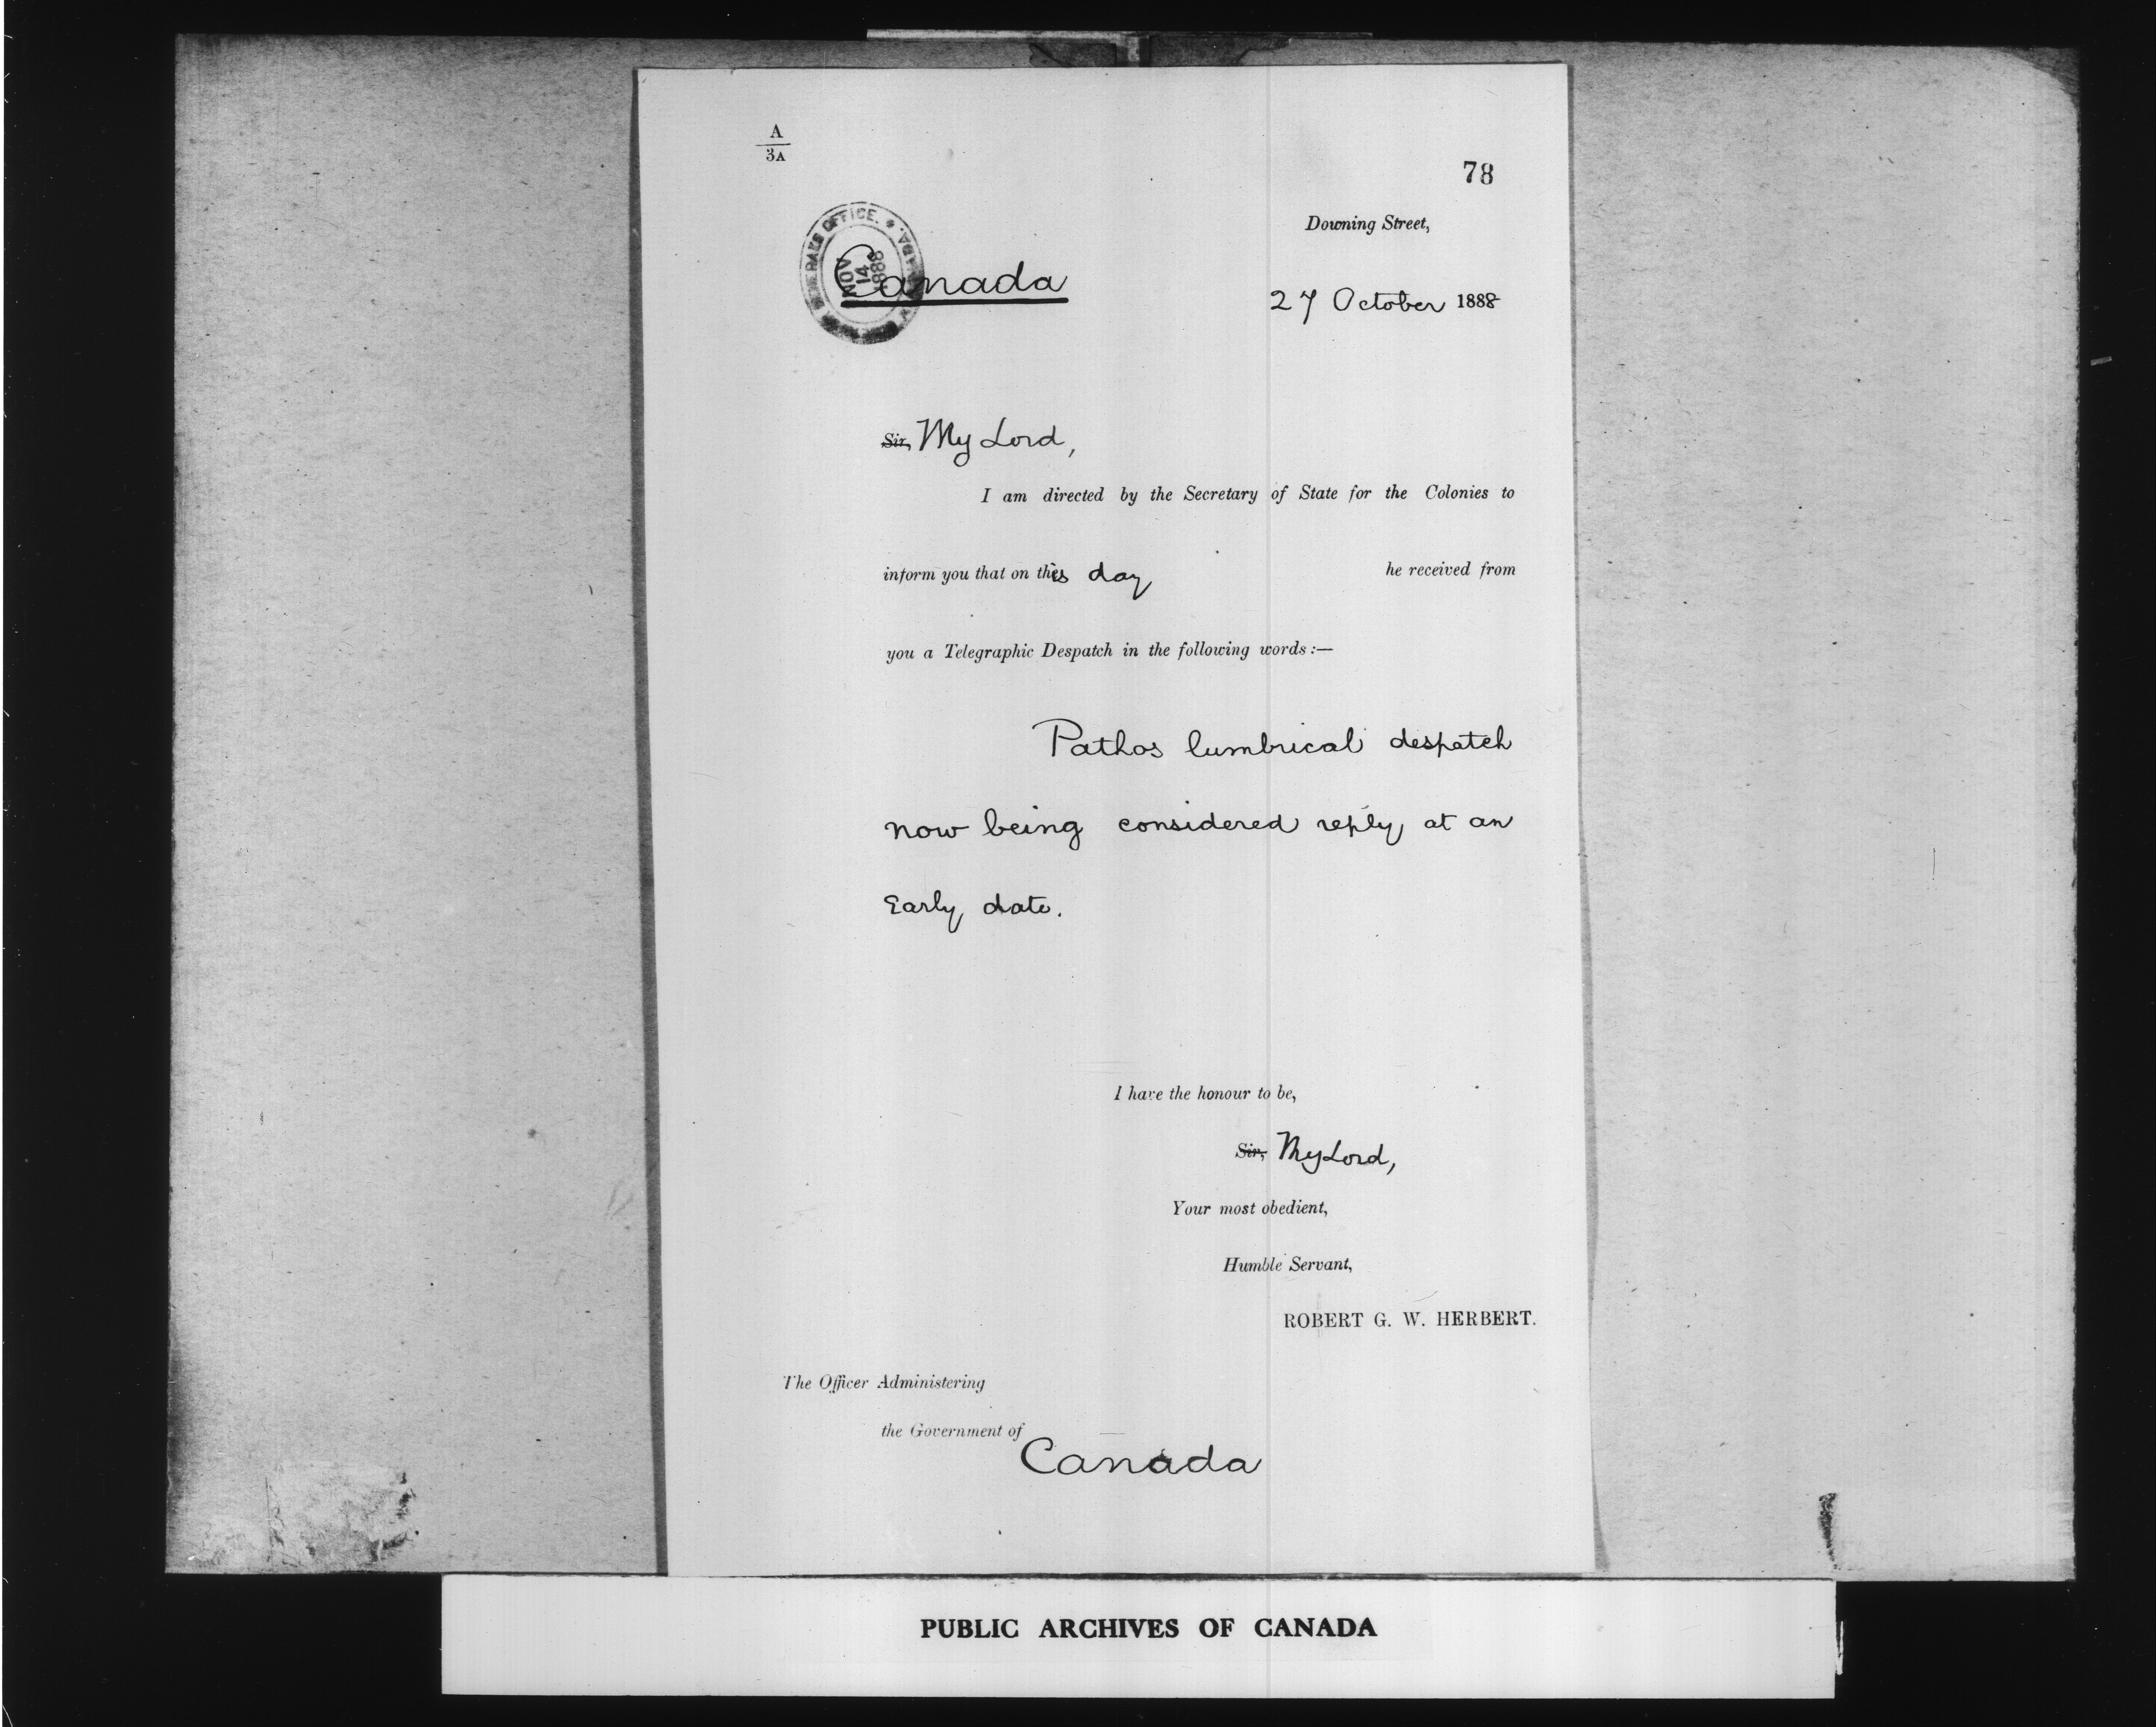 A
3A
78
Downing Street,
GENERAL'S OFFICE.
NOV
14
1888
Canada
27 October 1888
Sir, My Lord,
I am directed by the Secretary of State for the Colonies to
inform you that on this day he received from
you a Telegraphic Despatch in the following words:—
Pathos lumbrical despatch
now being considered reply at an
Early date.
I have the honour to be,
Sir, My Lord,
Your most obedient,
Humble Servant,
ROBERT G. W. HERBERT.
The Officer Administering
the Government of
Canada
PUBLIC ARCHIVES OF CANADA